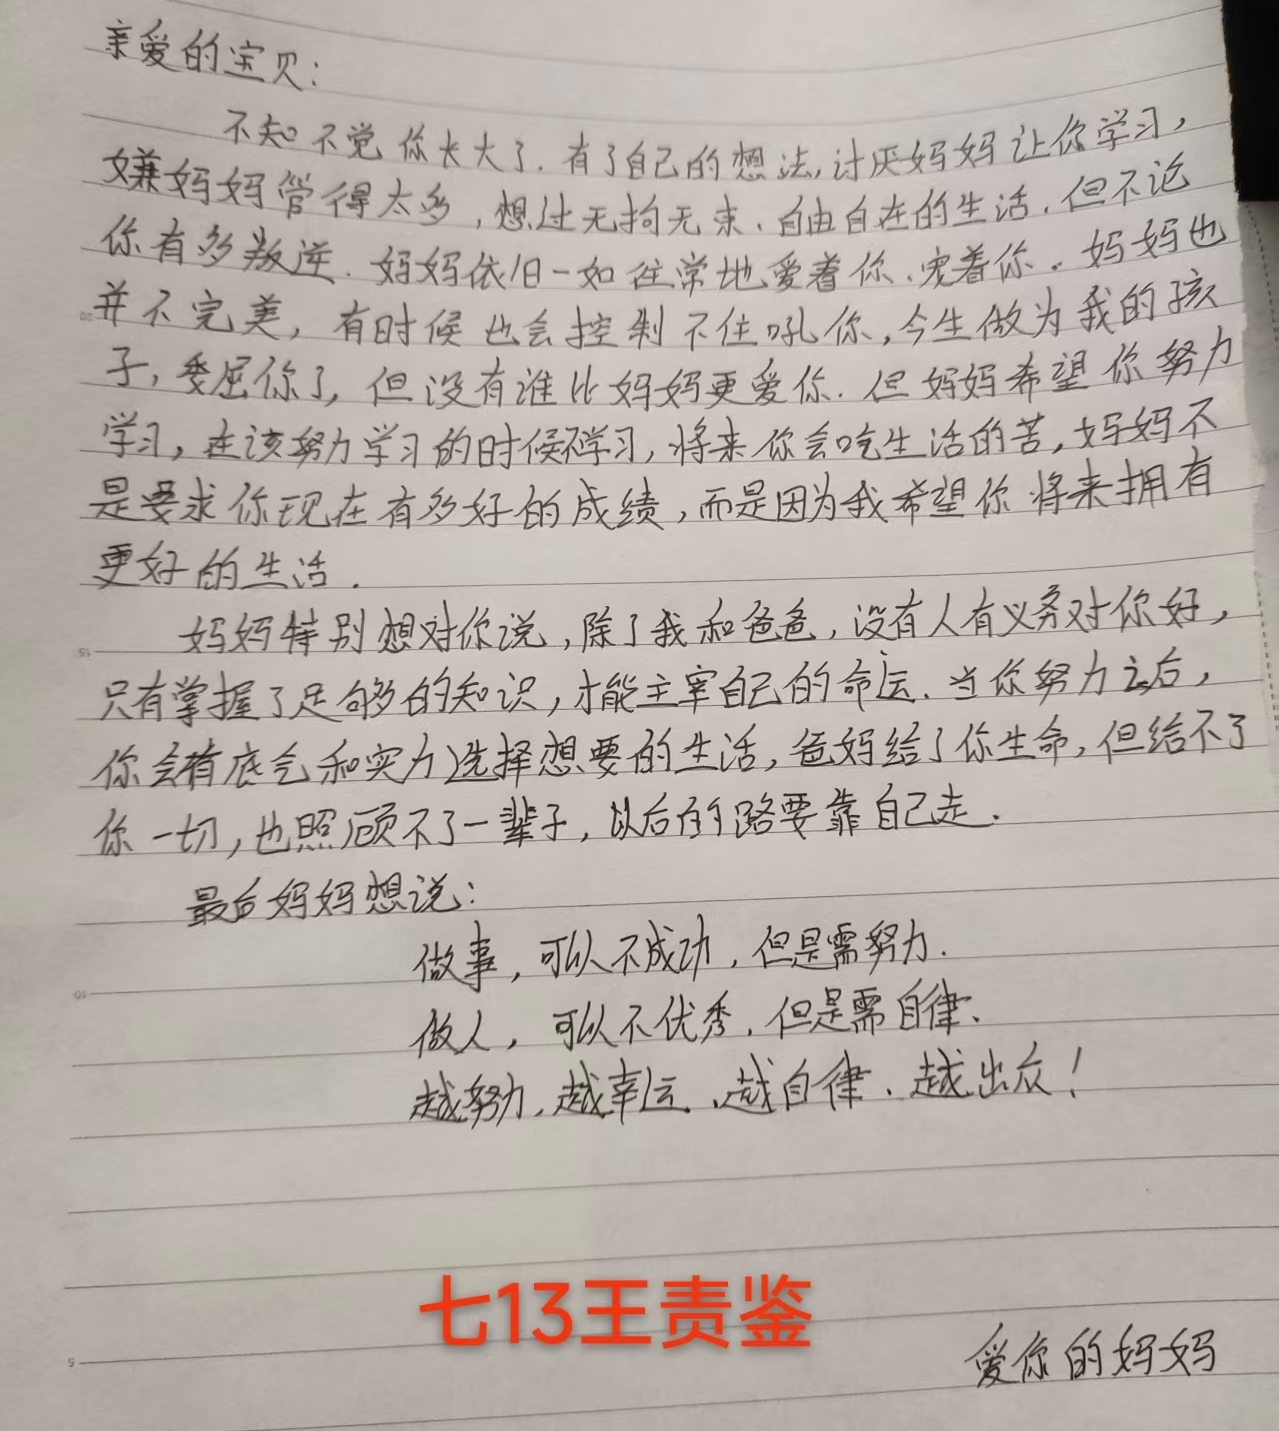 亲爱的宝贝：
不知不觉你长大了．有了自己的想法，讨厌妈妈让你学习，
嫌妈妈管得太多，想过无拘无束、自由自在的生活．但不论
你有多叛逆．妈妈依旧一如往常地爱着你、宠着你．妈妈也
并不完美，有时候也会控制不住吼你，今生做为我的孩
子，委屈你了，但没有谁比妈妈更爱你．但妈妈希望你努力
学习，在该努力学习的时候不学习，将来你会吃生活的苦，妈妈不
是要求你现在有多好的成绩，而是因为我希望你将来拥有
更好的生活．
妈妈特别想对你说，除了我和爸爸，没有人有义务对你好，
只有掌握了足够的知识，才能主宰自己的命运．当你努力之后，
你会有底气和实力选择想要的生活，爸妈给了你生命，但给不了
你一切，也照顾不了一辈子，以后的路要靠自己走．
最后妈妈想说：
做事，可以不成功，但是需努力．
做人，可以不优秀．但是需自律、
越努力．越幸运．越自律．越出众！
七13王责鉴
爱你的妈妈